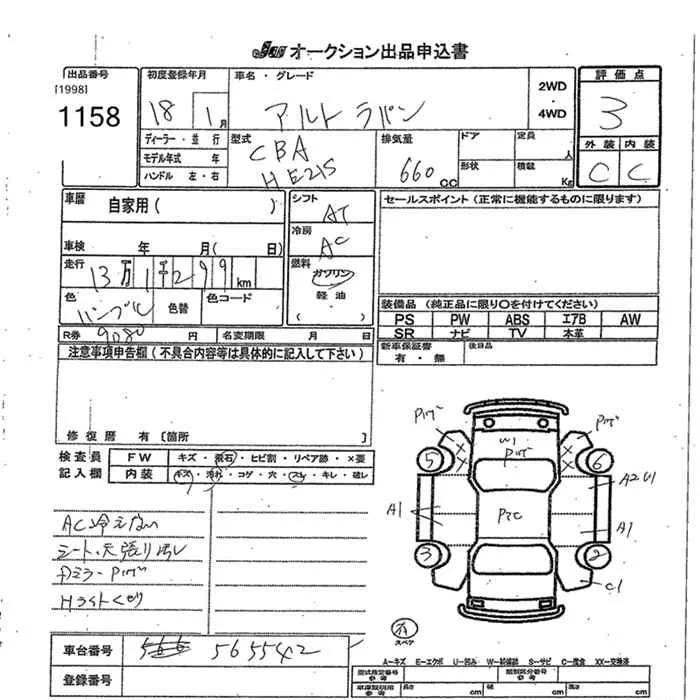 JU オークション出品申込書
出品番号
[1998]
1158
初度登録年月
18 1月
ディーラー・並 行
モデル年式 年
ハンドル 左・右
車名・グレード
アルト ラパン
2WD
・
4WD
評価点
3
外装 内装
C C
型式
CBA
HE21S
排気量
660cc
ドア
形状
定員
人
積載
Kg
車歴
自家用( )
車検 年 月( 日)
走行
13万1千299km
色
色替
色コード
シフト
AT
冷房
AC
燃料
ガソリン
軽油
( )
セールスポイント(正常に機能するものに限ります)
装備品 (純正品に限り○を付けてください)
PS PW ABS エアB AW
SR ナビ TV 本革
新車保証書
有・無
後日品
R券 9080円 名変期限 月 日
注意事項申告欄(不具合内容等は具体的に記入して下さい)
修復歴 有[箇所 ]
検査員
記入欄
FW キズ・飛石・ヒビ割・リペア跡・×要
内装 キズ・汚れ・コゲ・穴・スレ・キレ・破レ
AC冷えない
シート・天張り汚レ
Hライトくもり
W1
5
6
A1
A2U1
A1
3
2
C1
有
スペケ
車台番号
565542
登録番号
A-キズ E-エクボ U-凹み W-補修跡 S-サビ C-腐食 XX-交換済
型式指定番号
参考
類別区分番号
参考
長さ cm
cm
cm